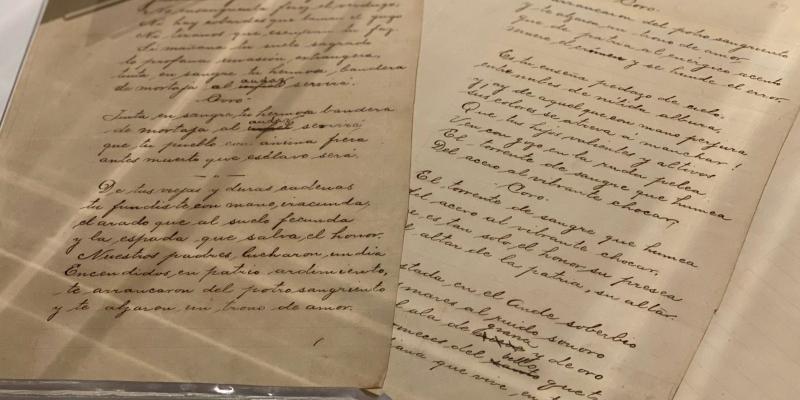 No ensangrienta feroz el verdugo,
No hay cobardes que laman el yugo
No tiranos que escupan tu faz.
Si mañana tu suelo sagrado
lo profana invasión extrangera,
tinta en sangre tu hermosa bandera
de mortaja al audaz servirá.
Coro.
Tinta en sangre tu hermosa bandera
de mortaja al audaz servirá,
que tu pueblo con ánima fiera
antes muerto que esclavo será.
De tus viejas y duras cadenas
tu fundiste con mano iracunda,
el arado que al suelo fecunda
y la espada que salva el honor.
Nuestros padres lucharon un día
Encendidos en patrio ardimiento,
te arrancaron del potro sangriento
y te alzaron un trono de amor.
Coro.
arrancaron del potro sangriento
y te alzaron un trono de amor,
que de patria al enérgico acento
muere el crimen y se hunde el error.
Es tu enseña pedazo de cielo,
entre nubes de nítida albura,
y ¡ay de aquel que con mano perjura
sus colores se atreva á manchar!
Que tus hijos valientes y altivos
Ven con gozo en la ruda pelea
El torrente de sangre que humea
Del acero al vibrante chocar,
Coro.
El torrente de sangre que humea
del acero al vibrante chocar,
e es tan solo, el honor, su presea
l altar de la patria, su altar.
stada en el Ande soberbio
mares al ruido sonoro
ala de grana y de oro
meces del
iana que vive, en